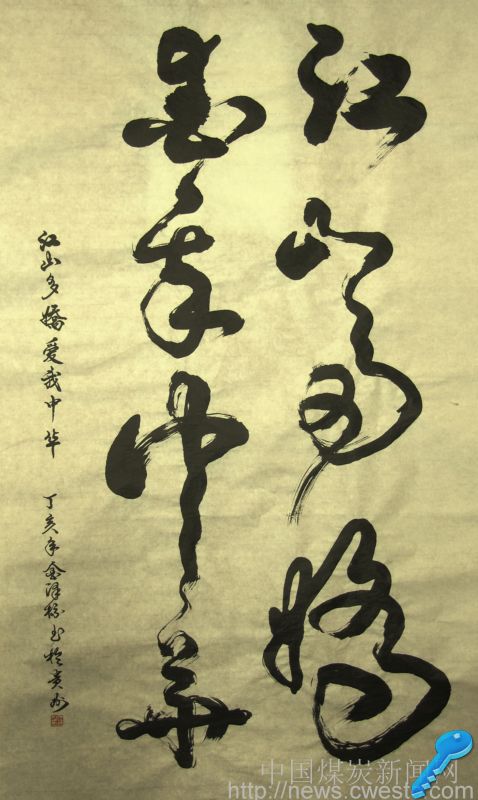 江山多娇
爱我中华
江山多娇爱我中华 丁亥年金泽󠄁书於贵州
中国煤炭新闻网
http://news.cwestc.com